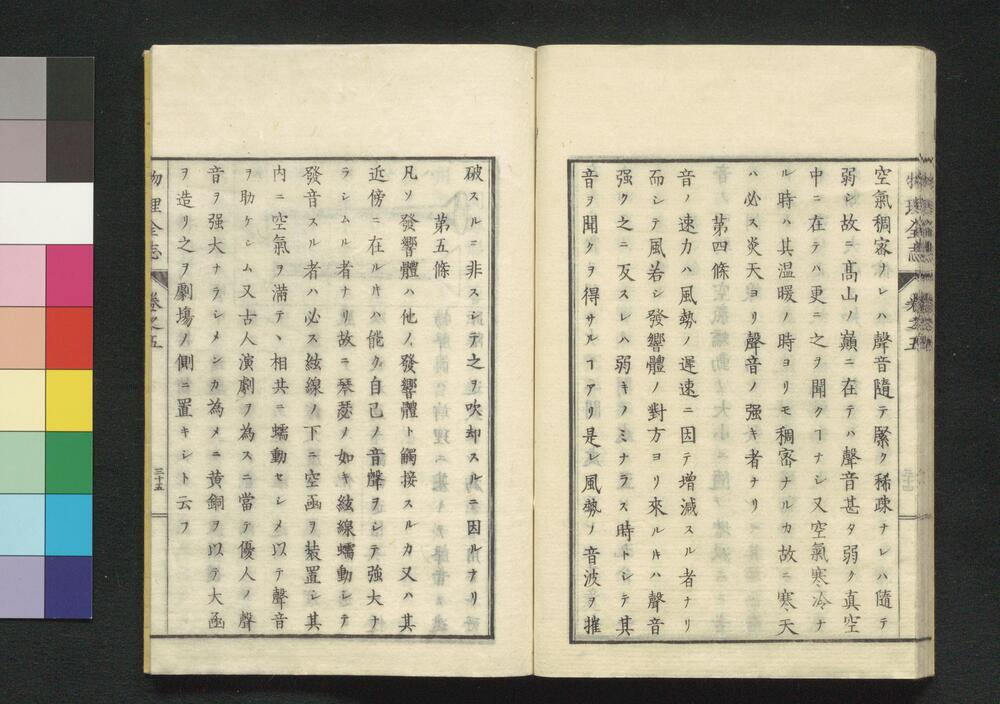 空氣稠密ナレハ聲音隨テ緊ク稀疎ナレハ隨テ
弱シ故ニ髙山ノ巓ニ在テハ聲音甚タ弱ク真空
中ニ在テハ更ニ之ヲ聞クヿナシ又空氣寒冷ナ
ル時ハ其温暖ノ時ヨリモ稠密ナルカ故ニ寒天
ハ必ス炎天ヨリ聲音ノ强キ者ナリ
第四條
音ノ速力ハ風勢ノ遅速ニ因テ増減スル者ナリ
而シテ風若シ發響體ノ對方ヨリ來ルキハ聲音
强ク之ニ反スレハ弱キノミナラス時トシテ其
音ヲ聞クヲ得サルヿアリ是レ風勢ノ音波ヲ摧
破スルニ非スシテ之ヲ吹却スルニ因ルナリ
第五條
凡ソ發響體ハ他ノ發響體ト觸接スルカ又ハ其
近傍ニ在ルキハ能ク自己ノ音聲ヲシテ強大ナ
ラシムル者ナリ故ニ琴瑟ノ如キ絃線蠕動シテ
發音スル者ハ必ス絃線ノ下ニ空函ヲ装置シ其
内ニ空氣ヲ満テ丶相共ニ蠕動セシメ以テ聲音
ヲ助ケシム又古人演劇ヲ為スニ當テ優人ノ聲
音ヲ强大ナラシメンカ為メニ黄銅ヲ以テ大函
ヲ造リ之ヲ劇塲ノ側ニ置キシト云フ
物理全志
卷之五
三十五